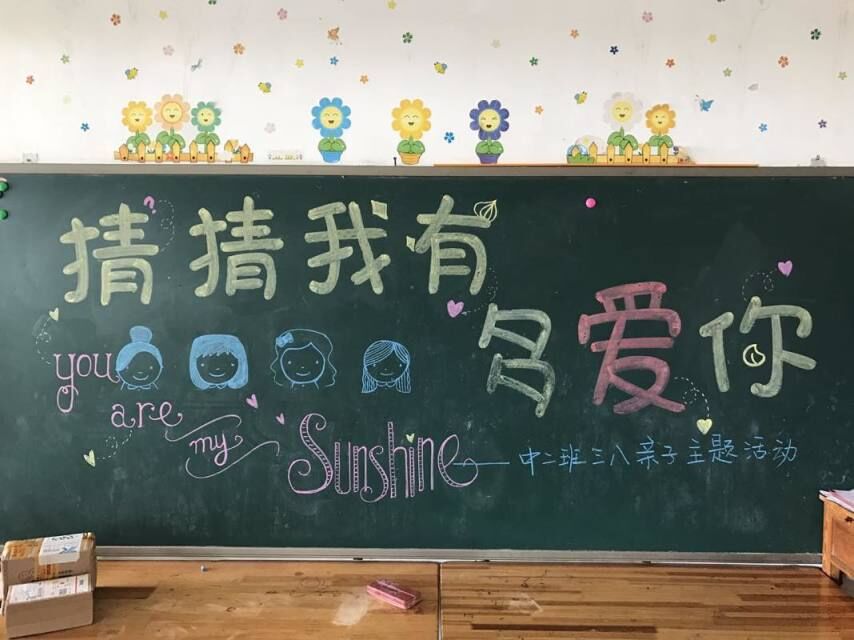 猜猜我有
多爱你
you
are
my
Sunshine
——中二班三八亲子主题活动